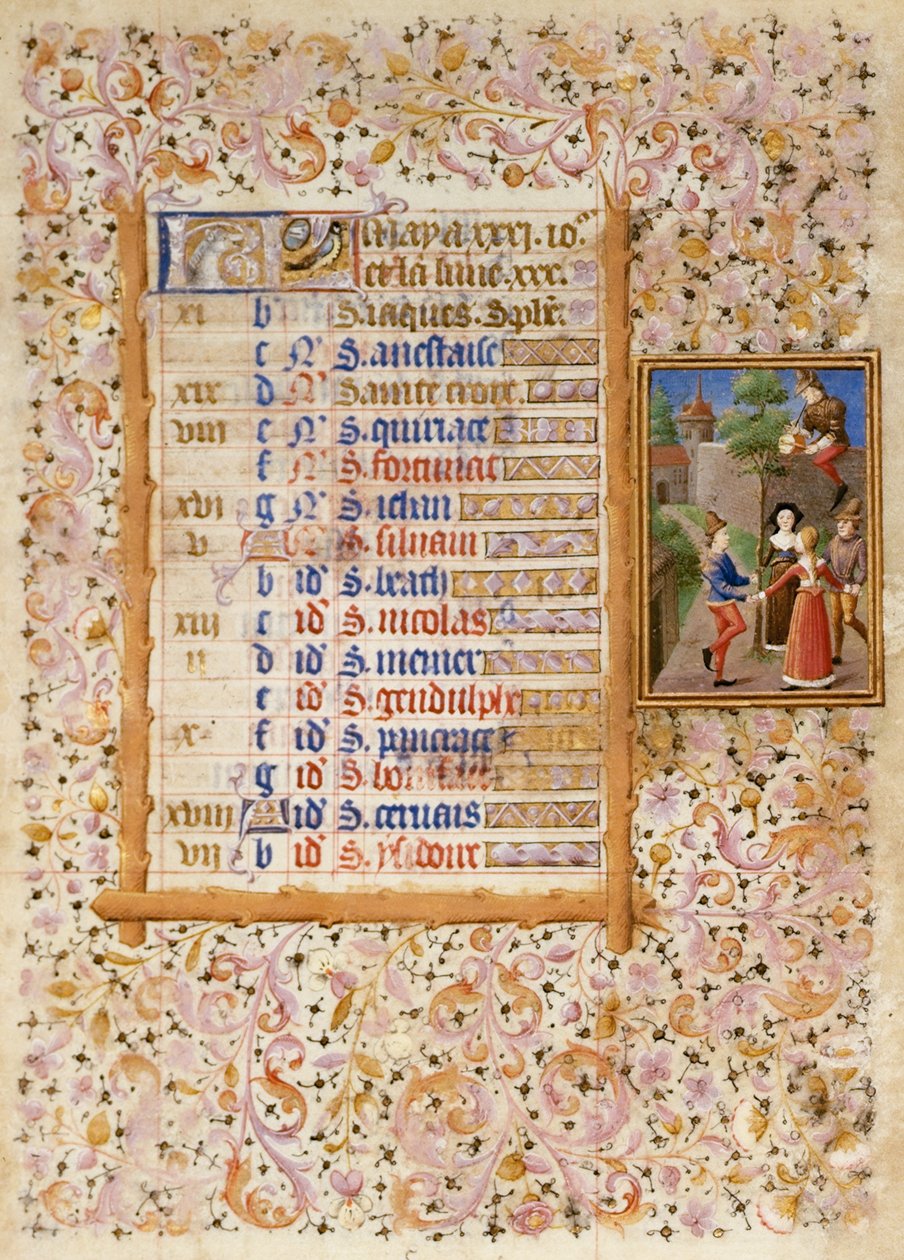 KL May a xxxj. io^rs
et la lune .xxx.
xi b S. iaques. S. phe
c N^s S. anestaise
xix d N^s Sainte croix.
viij e N^s S. quiriace
f N^s S. fortunat
xvj g N^s S. iehan
v A N^s S. siluain
b id^s S. beath
xiij c id^s S. nicolas
ij d id^s S. meuier
e id^s S. gendulphe
x f id^s S. pancrace
g id^s S. boniface
xviij A id^s S. ceruais
vij b id^s S. ysidoire